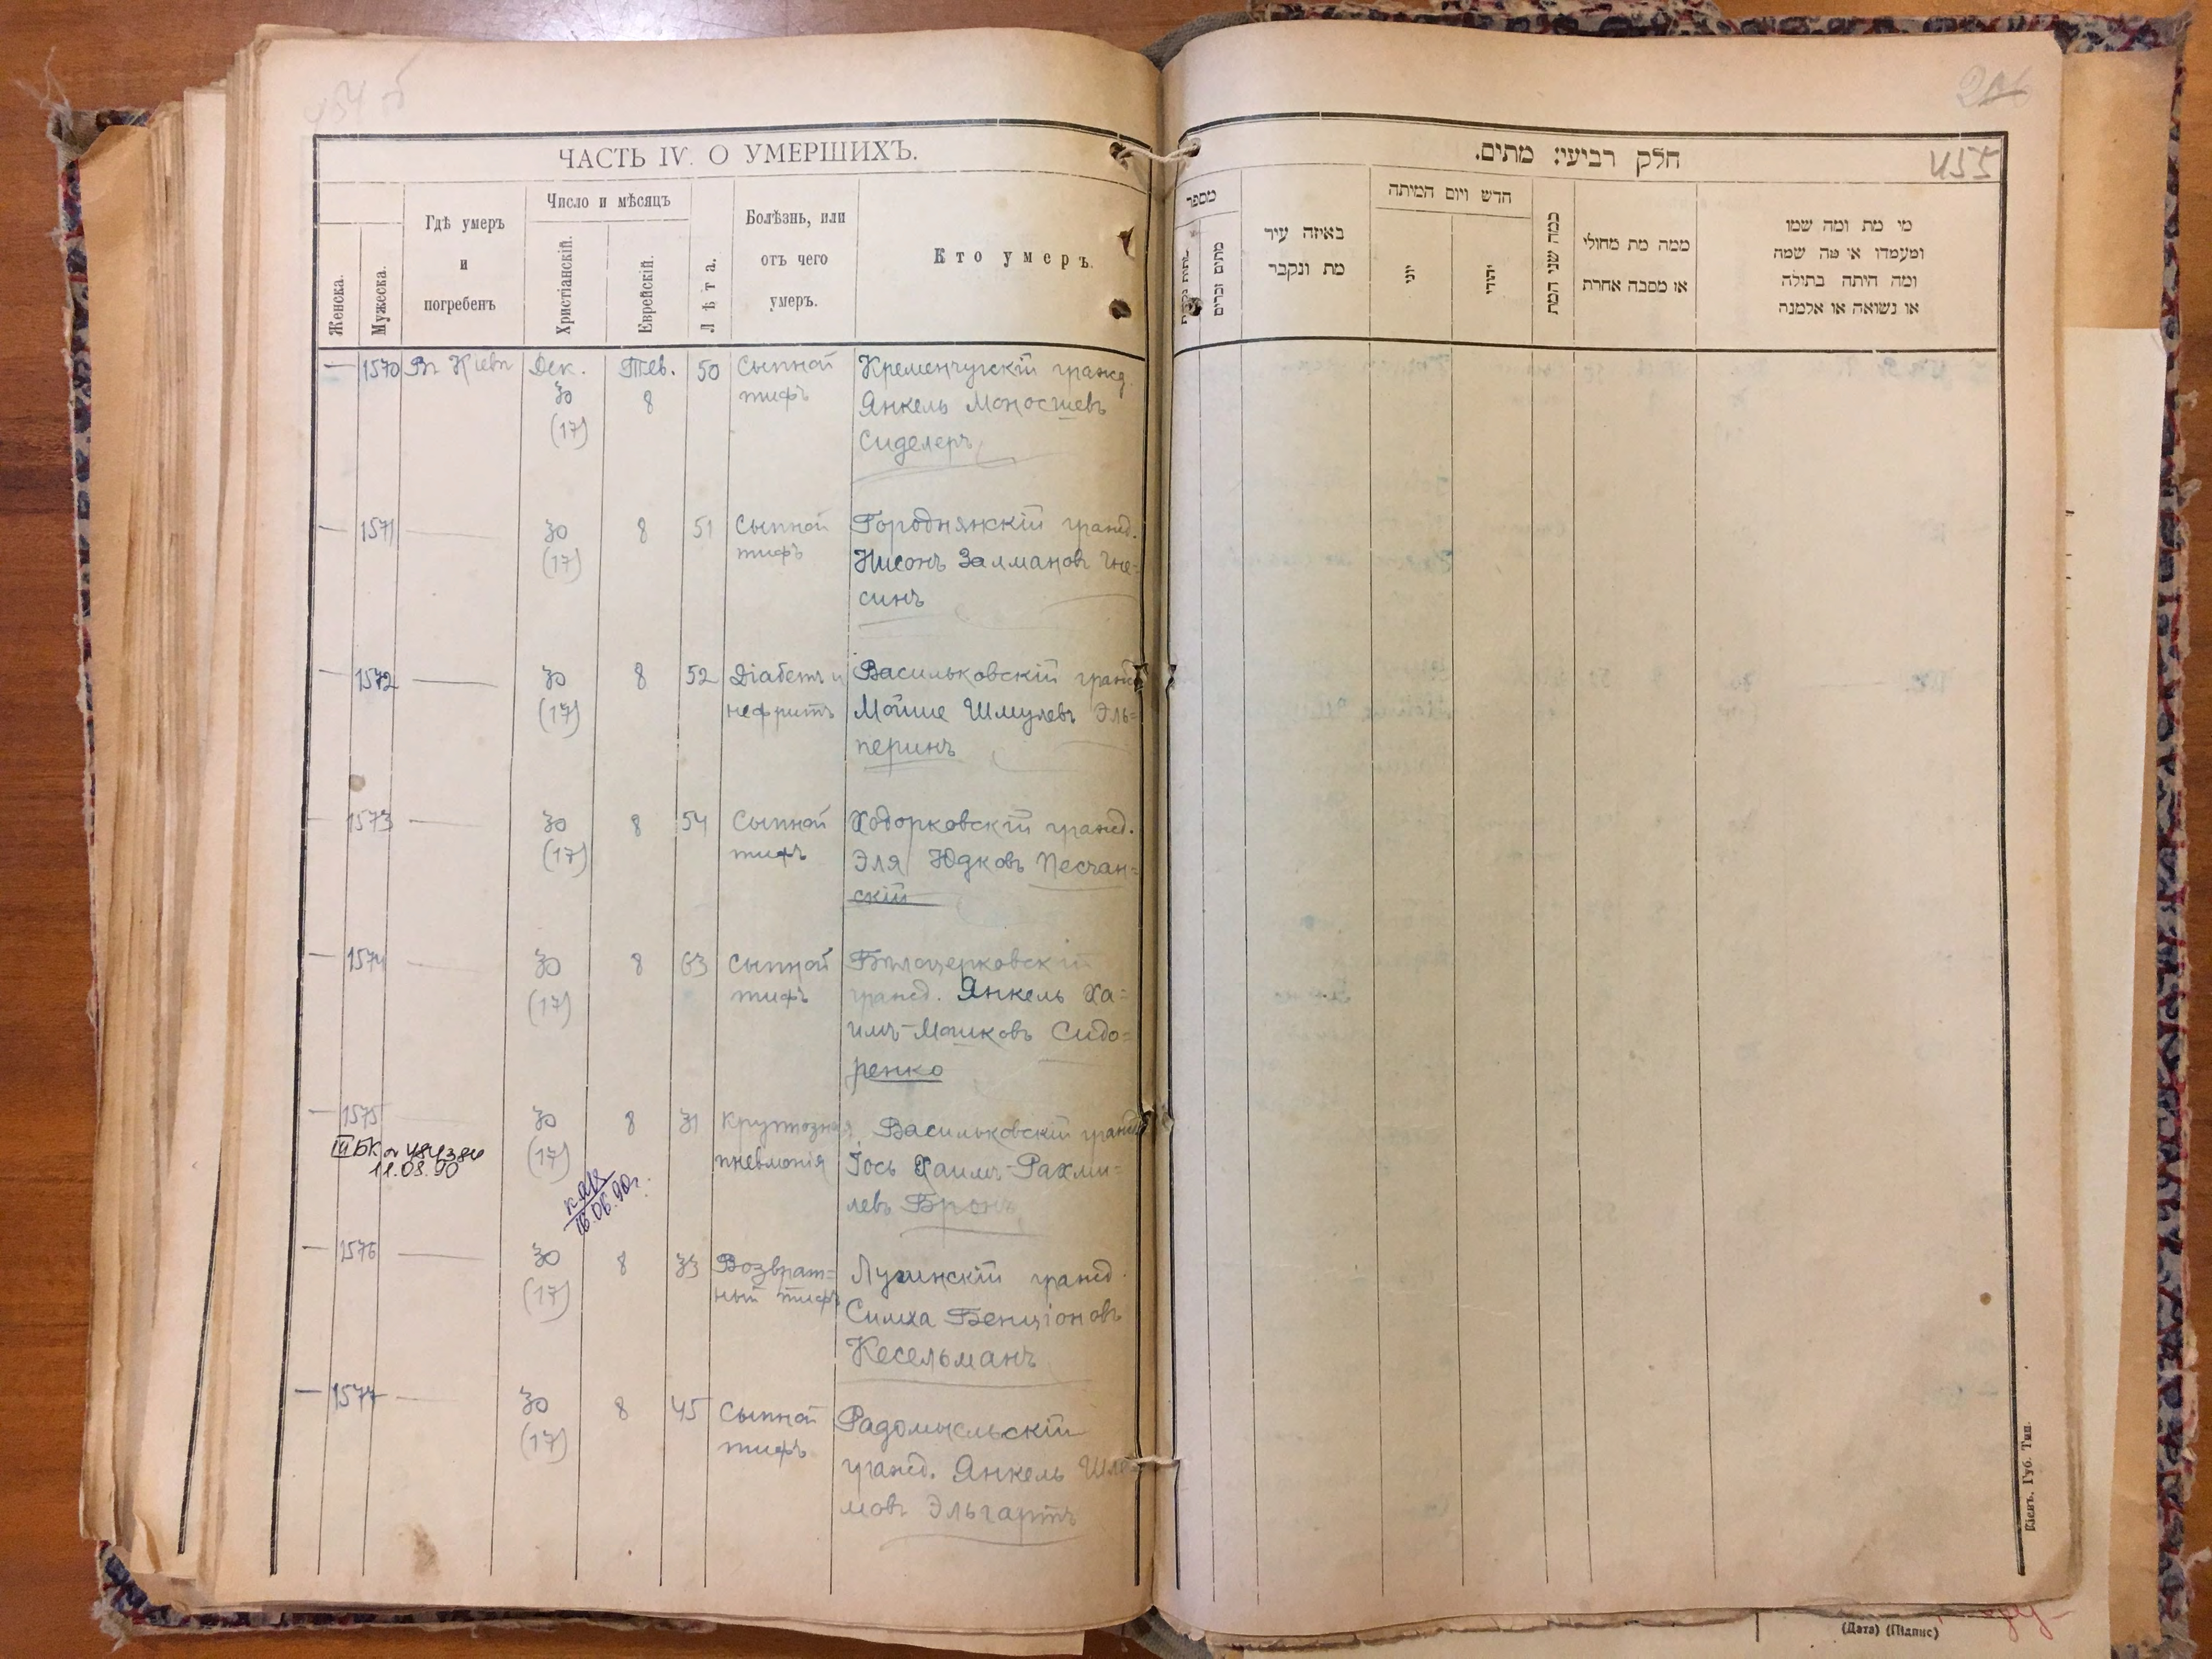 454 б
ЧАСТЬ IV. О УМЕРШИХЪ.
Женска.
Мужеска.
Гдѣ умеръ
и
погребенъ
Число и мѣсяцъ
Христіанскій.
Еврейскій.
Лѣта.
Болѣзнь, или
отъ чего
умеръ.
Кто умеръ.
— 1570 Въ Кіевѣ Дек. Тев. 50 Сыпной Кременчугскій гражд.
30 8 тифъ Янкель Моносіевъ
(17) Сиделеръ
— 1571 — 30 8 51 Сыпной Городнянскій гражд.
(17) тифъ Нисонъ Залмановъ Гне=
синъ
— 1572 — 30 8 52 Діабетъ и Васильковскій гражд.
(17) нефритъ Мойше Шмулевъ Эль=
перинъ
— 1573 — 30 8 54 Сыпной Ходорковскій гражд.
(17) тифъ Эля Юдковъ Песчан=
скій
— 1574 — 30 8 63 Сыпной Бѣлоцерковскій
(17) тифъ гражд. Янкель Ха=
имъ-Машковъ Сидо=
ренко
— 1575 — 30 8 31 Крупозная Васильковскій гражд.
(17) пневмонія Іось Хаимъ-Рахми=
левъ Бронъ
11.03.90
16.06.90г.
— 1576 — 30 8 33 Возврат= Лугинскій гражд.
(17) ный тифъ Симха Бенціоновъ
Кесельманъ
— 1577 — 30 8 45 Сыпной Радомысльскій
(17) тифъ гражд. Янкель Шле=
мовъ Эльгартъ
455
חלק רביעי: מתים.
מספר
מתים זכרים
באיזה עיר
מת ונקבר
חדש ויום המיתה
יוני
יהודי
כמה שני המת
ממה מת מחולי
או מסבה אחרת
מי מת ומה שמו
ומעמדו או מה שמה
ומה היתה בתולה
או נשואה או אלמנה
Кіевъ, Губ. Тип.
(Дата) (Підпис)